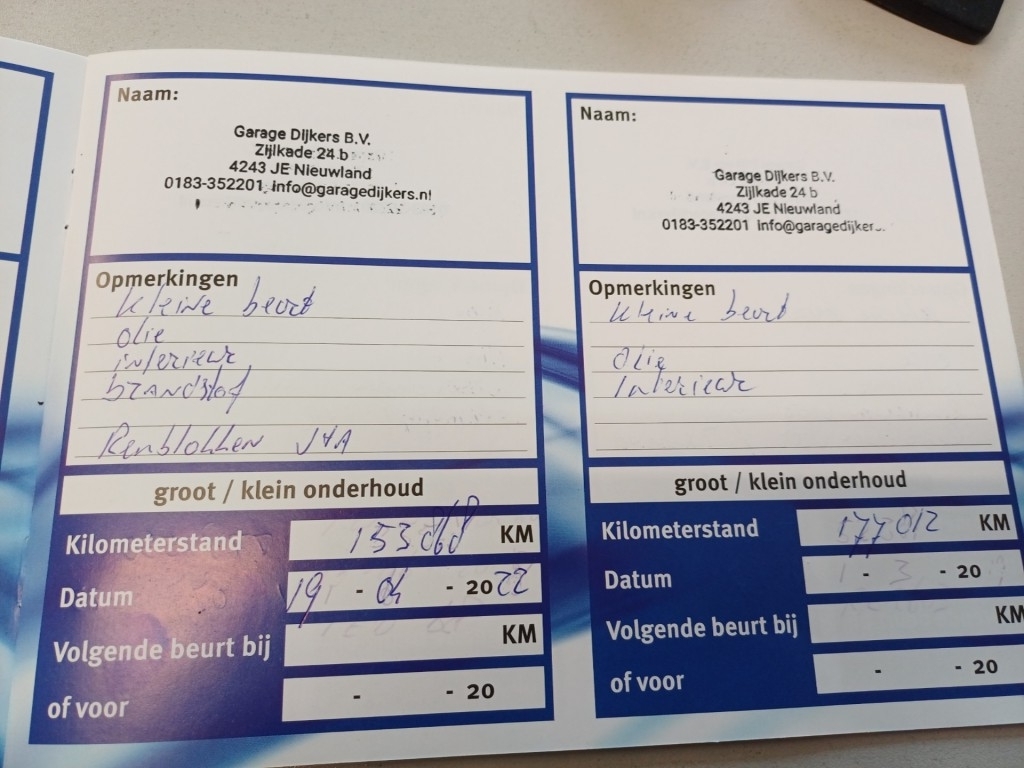 Naam:
Garage Dijkers B.V.
Zijlkade 24 b
4243 JE Nieuwland
0183-352201 info@garagedijkers.nl
Opmerkingen
kleine beurt
olie
interieur
brandstof
Remblokken V+A
groot / klein onderhoud
Kilometerstand 153868 KM
Datum 19 - 04 - 2022
Volgende beurt bij KM
of voor - - 20
Naam:
Garage Dijkers B.V.
Zijlkade 24 b
4243 JE Nieuwland
0183-352201 info@garagedijker
Opmerkingen
kleine beurt
Olie
Interieur
groot / klein onderhoud
Kilometerstand 177012 KM
Datum 1 - 3 - 20
Volgende beurt bij KM
of voor - - 20